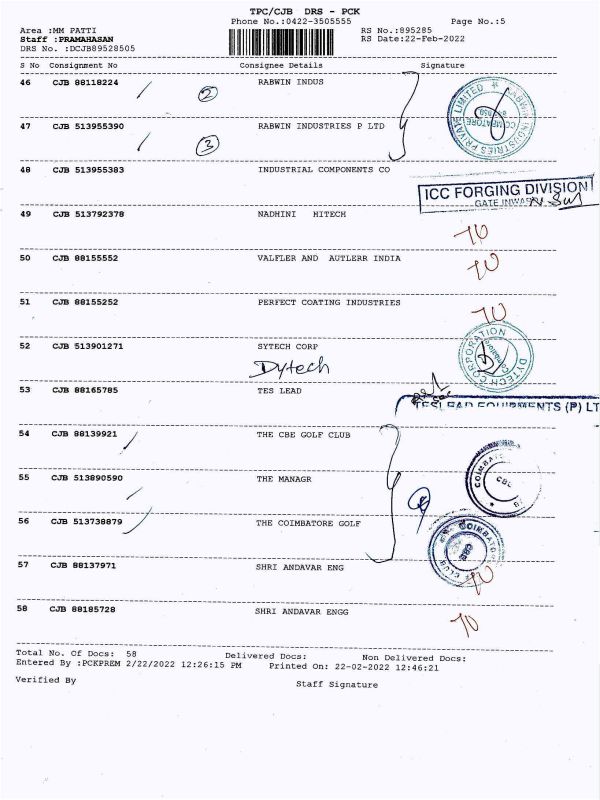 TPC/CJB DRS - PCK
Phone No.:0422-3505555 Page No.:5
Area :MM PATTI RS No.:895285
Staff :PRAMAHASAN RS Date:22-Feb-2022
DRS No. :DCJB89528505
S No Consignment No Consignee Details Signature
46 CJB 88118224 2 RABWIN INDUS
47 CJB 513955390 3 RABWIN INDUSTRIES P LTD
RABWIN INDUSTRIES PRIVATE LIMITED
48 CJB 513955383 INDUSTRIAL COMPONENTS CO
ICC FORGING DIVISION
49 CJB 513792378 NADHINI HITECH
50 CJB 88155552 VALFLER AND AUTLERR INDIA
51 CJB 88155252 PERFECT COATING INDUSTRIES
52 CJB 513901271 SYTECH CORP
Dytech
DYTECH CORPORATION
53 CJB 88165785 TES LEAD
TESLEAD EQUIPMENTS (P) LT
54 CJB 88139921 THE CBE GOLF CLUB
55 CJB 513890590 THE MANAGR
56 CJB 513738879 THE COIMBATORE GOLF
57 CJB 88137971 SHRI ANDAVAR ENG
58 CJB 88185728 SHRI ANDAVAR ENGG
Total No. Of Docs: 58 Delivered Docs: Non Delivered Docs:
Entered By :PCKPREM 2/22/2022 12:26:15 PM Printed On: 22-02-2022 12:46:21
Verified By Staff Signature